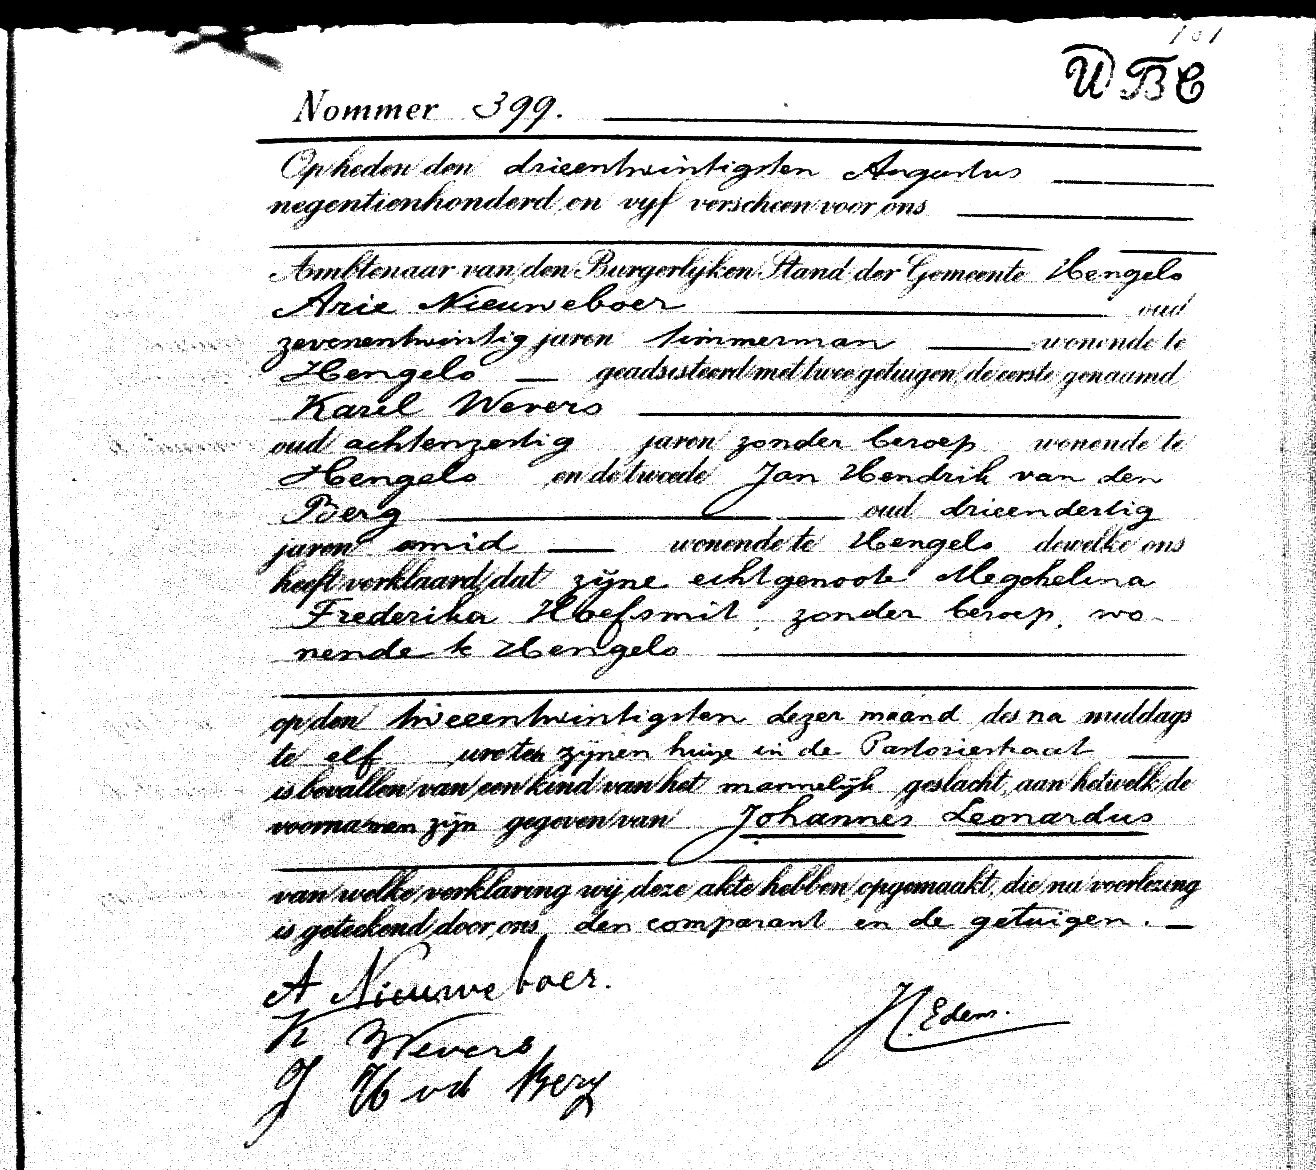 101
WBC
Nommer 399.
Op heden den drieentwintigsten Augustus
negentienhonderd en vyf verscheen voor ons
Ambtenaar van den Burgerlyken Stand der Gemeente Hengelo
Arie Nieuweboer oud
zevenentwintig jaren timmerman wonende te
Hengelo geadsisteerd met twee getuigen, de eerste genaamd
Karel Wevers
oud achtenzestig jaren zonder beroep wonende te
Hengelo en de tweede Jan Hendrik van den
Berg oud drieendertig
jaren smid wonende te Hengelo dewelke ons
heeft verklaard, dat zijne echtgenoote Megchelina
Frederika Hoefsmit, zonder beroep, wo-
nende te Hengelo
op den tweeentwintigsten dezer maand des na middags
te elf ure ten zijnen huize in de Pastoriestraat
is bevallen van een kind van het mannelijk geslacht, aan hetwelk de
voornamen zijn gegeven van Johannes Leonardus
van welke verklaring wij deze akte hebben opgemaakt, die na voorlezing
is geteekend door ons, den comparant en de getuigen.
A Nieuweboer.
K Wevers
J H vd Berg